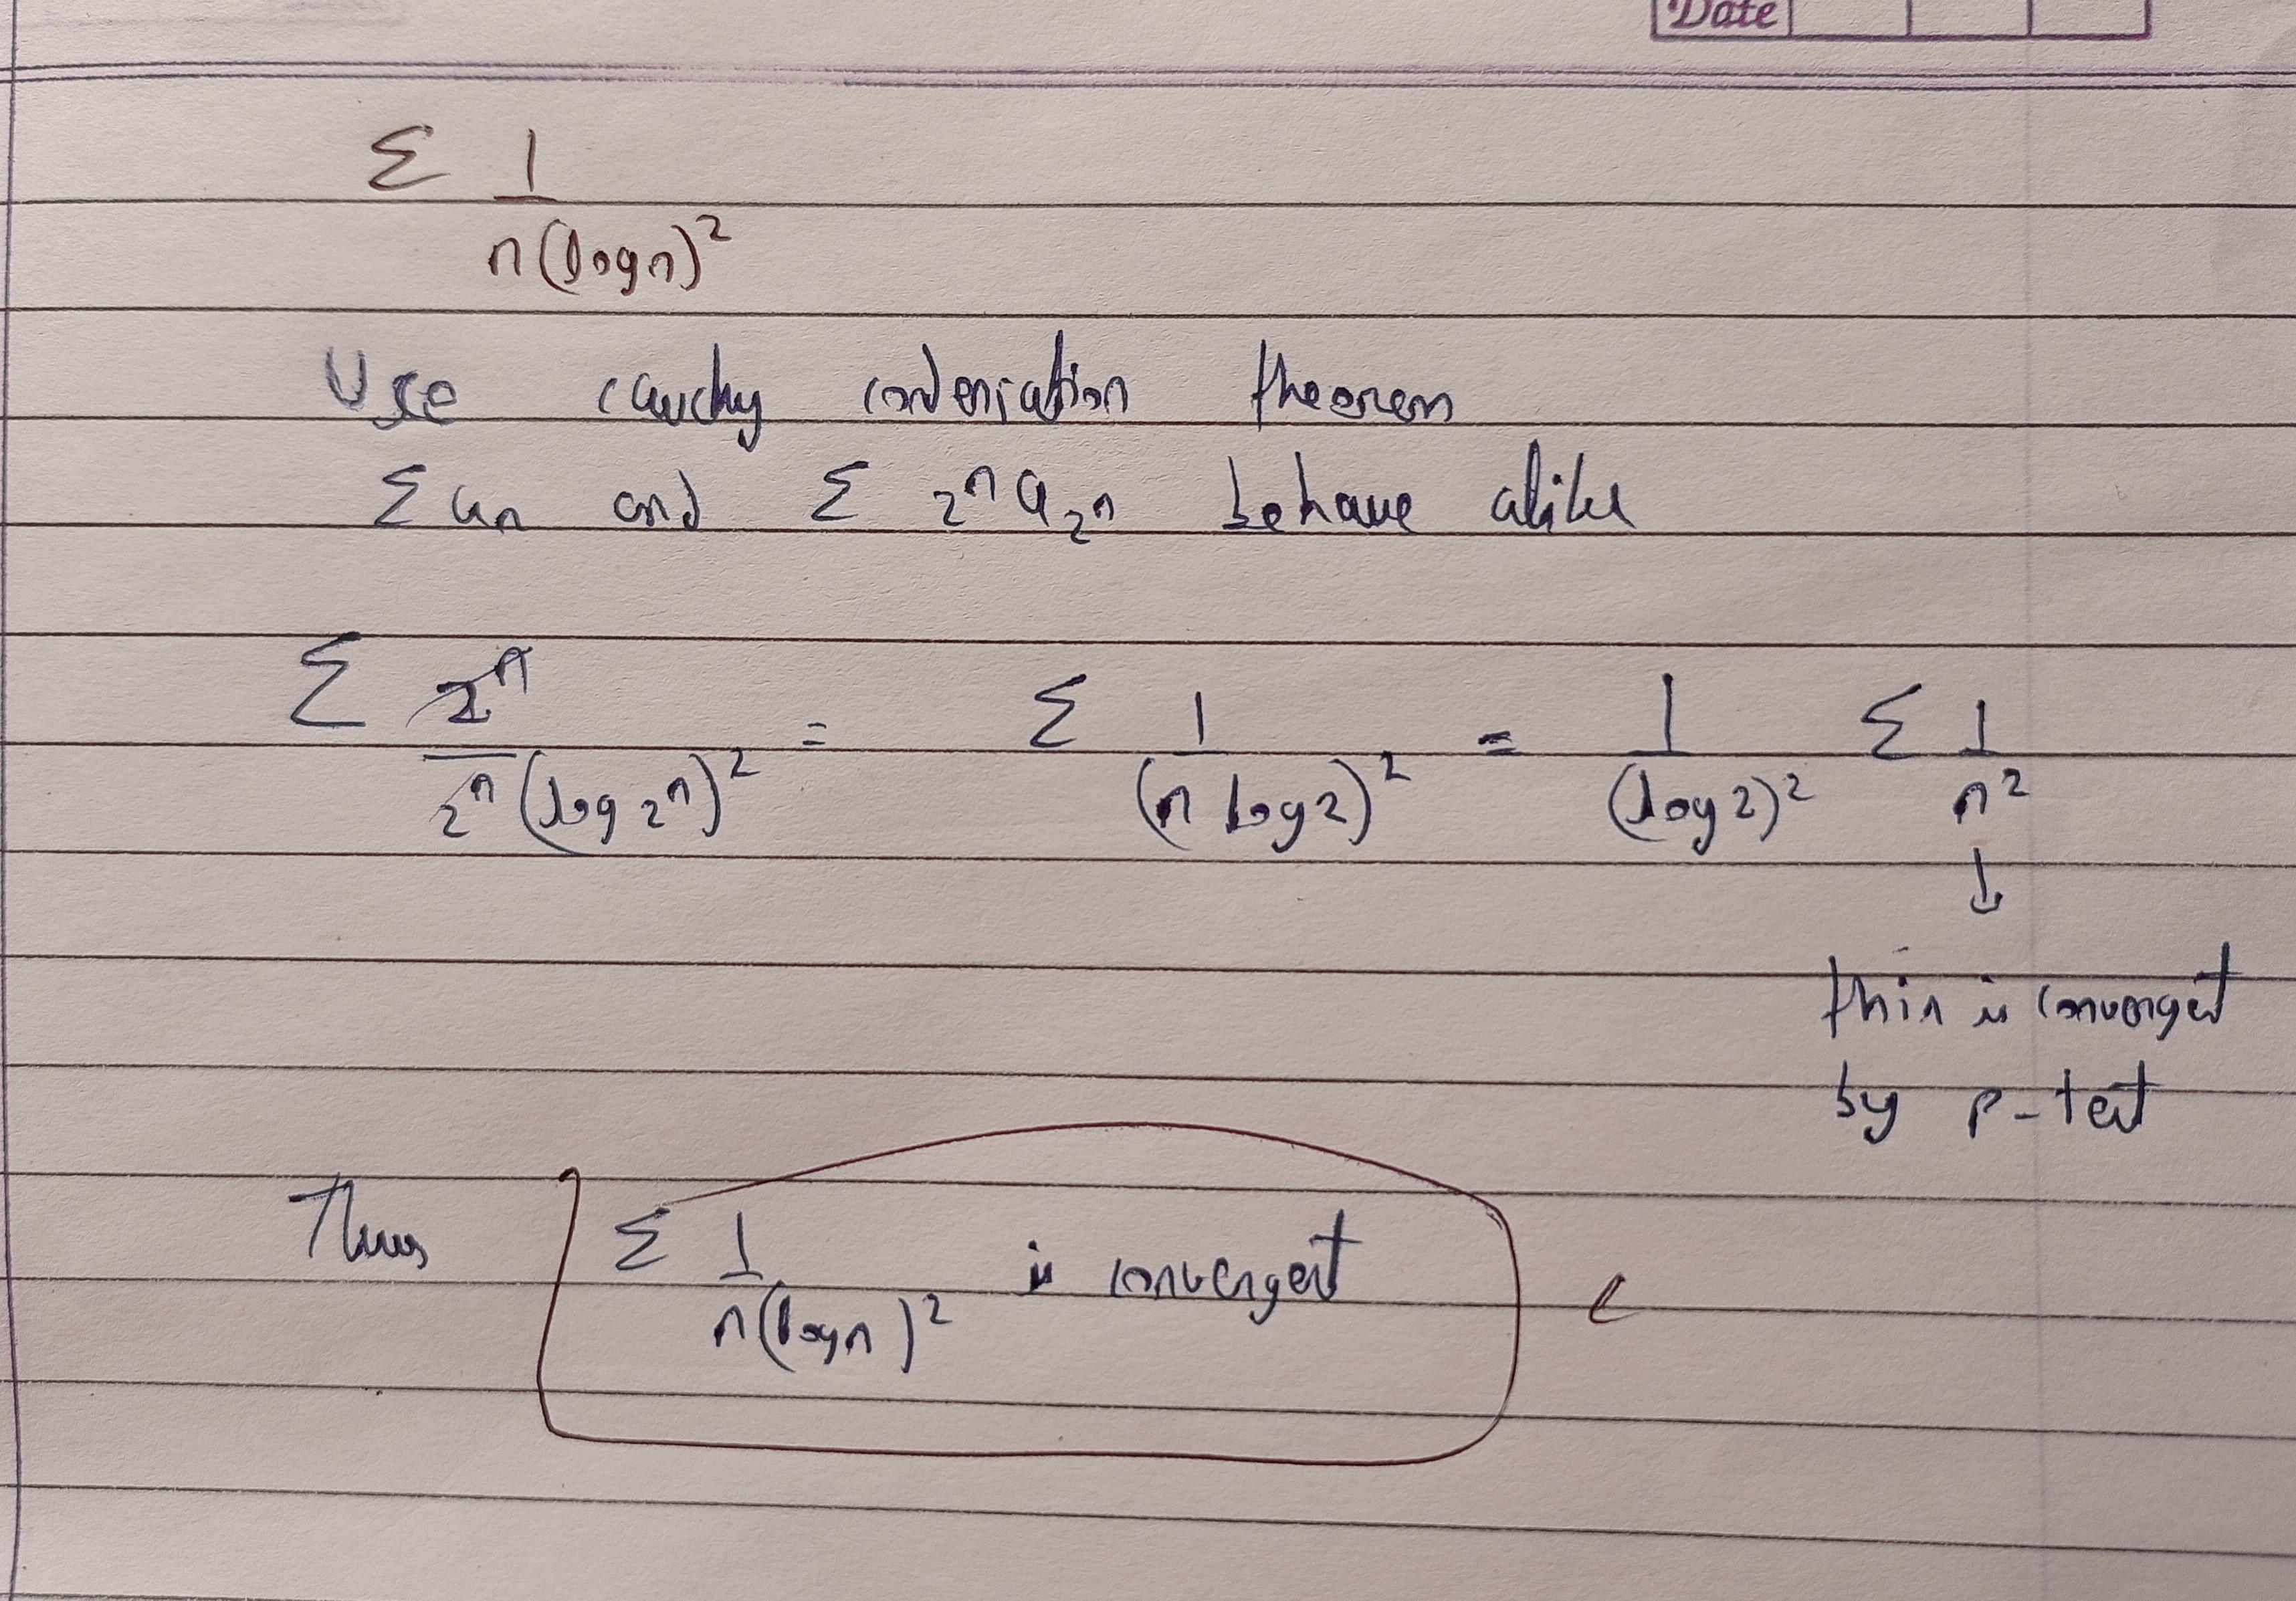 Date
Σ 1/n(log n)²
Use cauchy condensation theorem
Σ aₙ and Σ 2ⁿ a₂ⁿ behave alike
Σ 2ⁿ/2ⁿ(log 2ⁿ)² = Σ 1/(n log 2)² = 1/(log 2)² Σ 1/n²
↓
this is convergent
by p-test
Thus Σ 1/n(log n)² is convergent